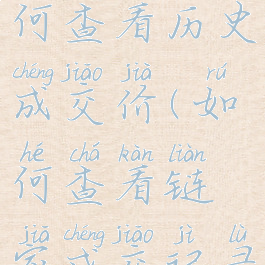 何查看历史
chéng jiāo jià rú
成交价(如
hé chá kàn liàn
何查看链
jiā chéng jiāo jì lù
家成交记录